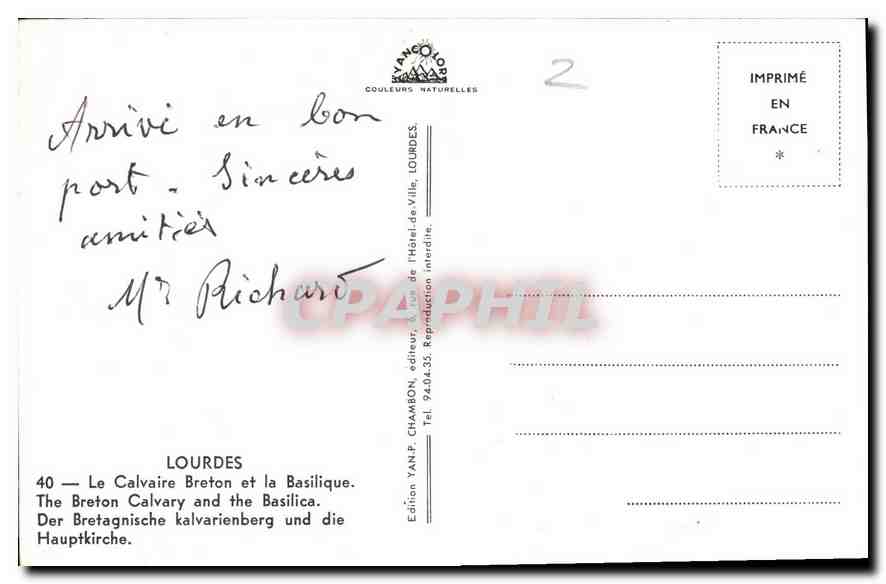 YANCOLOR
COULEURS NATURELLES
2
IMPRIMÉ
EN
FRANCE
*
Arrivé en bon
port - Sincères
amitiés
Mr Richard
CPAPHIL
Edition YAN-P. CHAMBON, éditeur, 6, rue de l'Hôtel-de-Ville, LOURDES.
Tel. 94.04-35. Reproduction interdite.
LOURDES
40 — Le Calvaire Breton et la Basilique.
The Breton Calvary and the Basilica.
Der Bretagnische kalvarienberg und die
Hauptkirche.